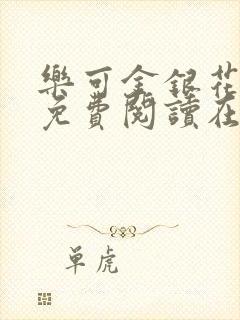 樂可金銀花
免費閱讀在
单虎